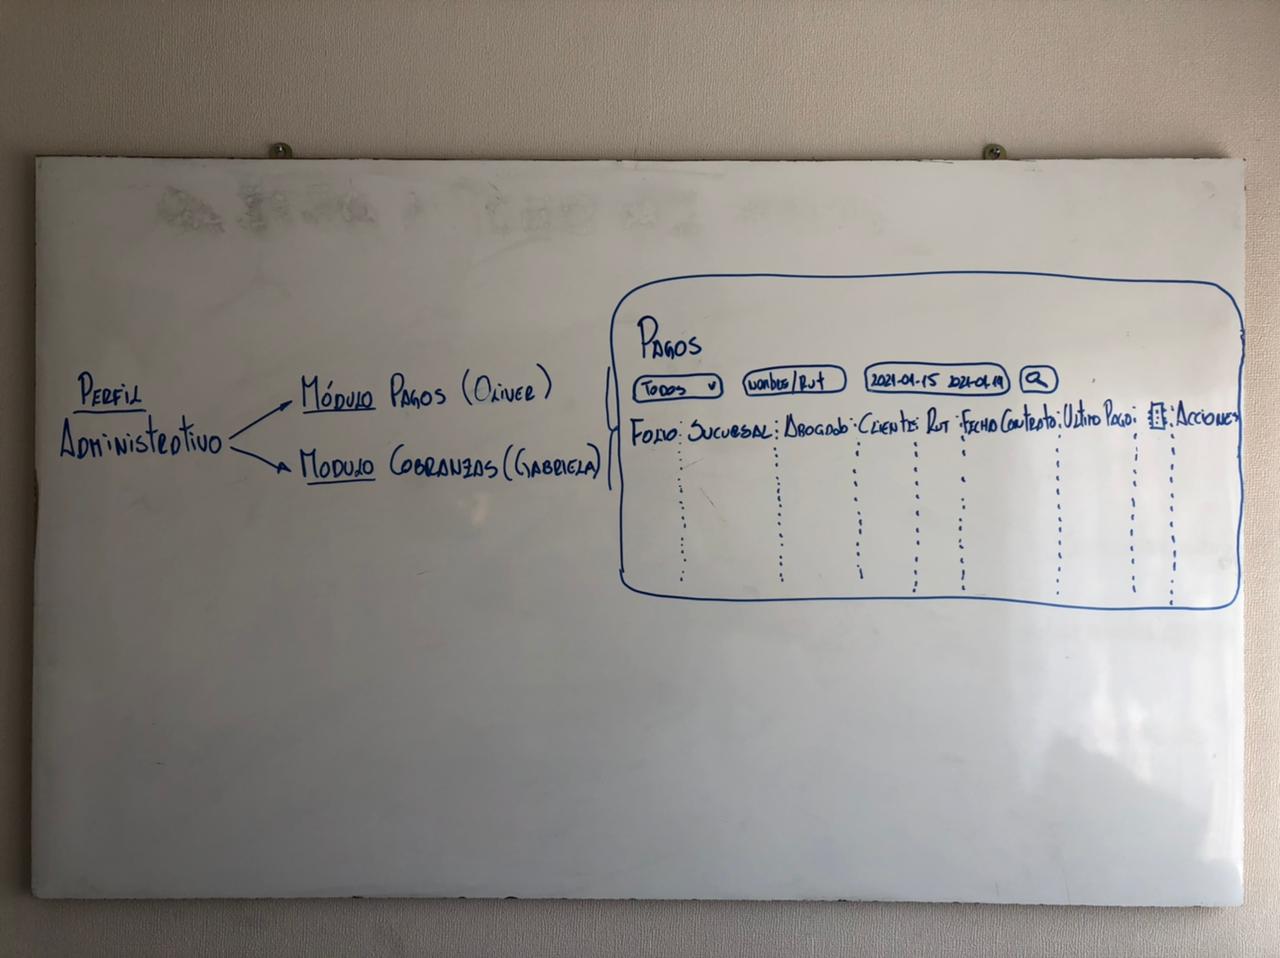 Perfil
Administrativo
Módulo Pagos (Oliver)
Modulo Cobranzas (Gabriela)
Pagos
Todos
Nombre/Rut
2021-01-15 2021-01-19
Folio Sucursal Abogado Cliente Rut Fecha Contrato Ultimo Pago Acciones